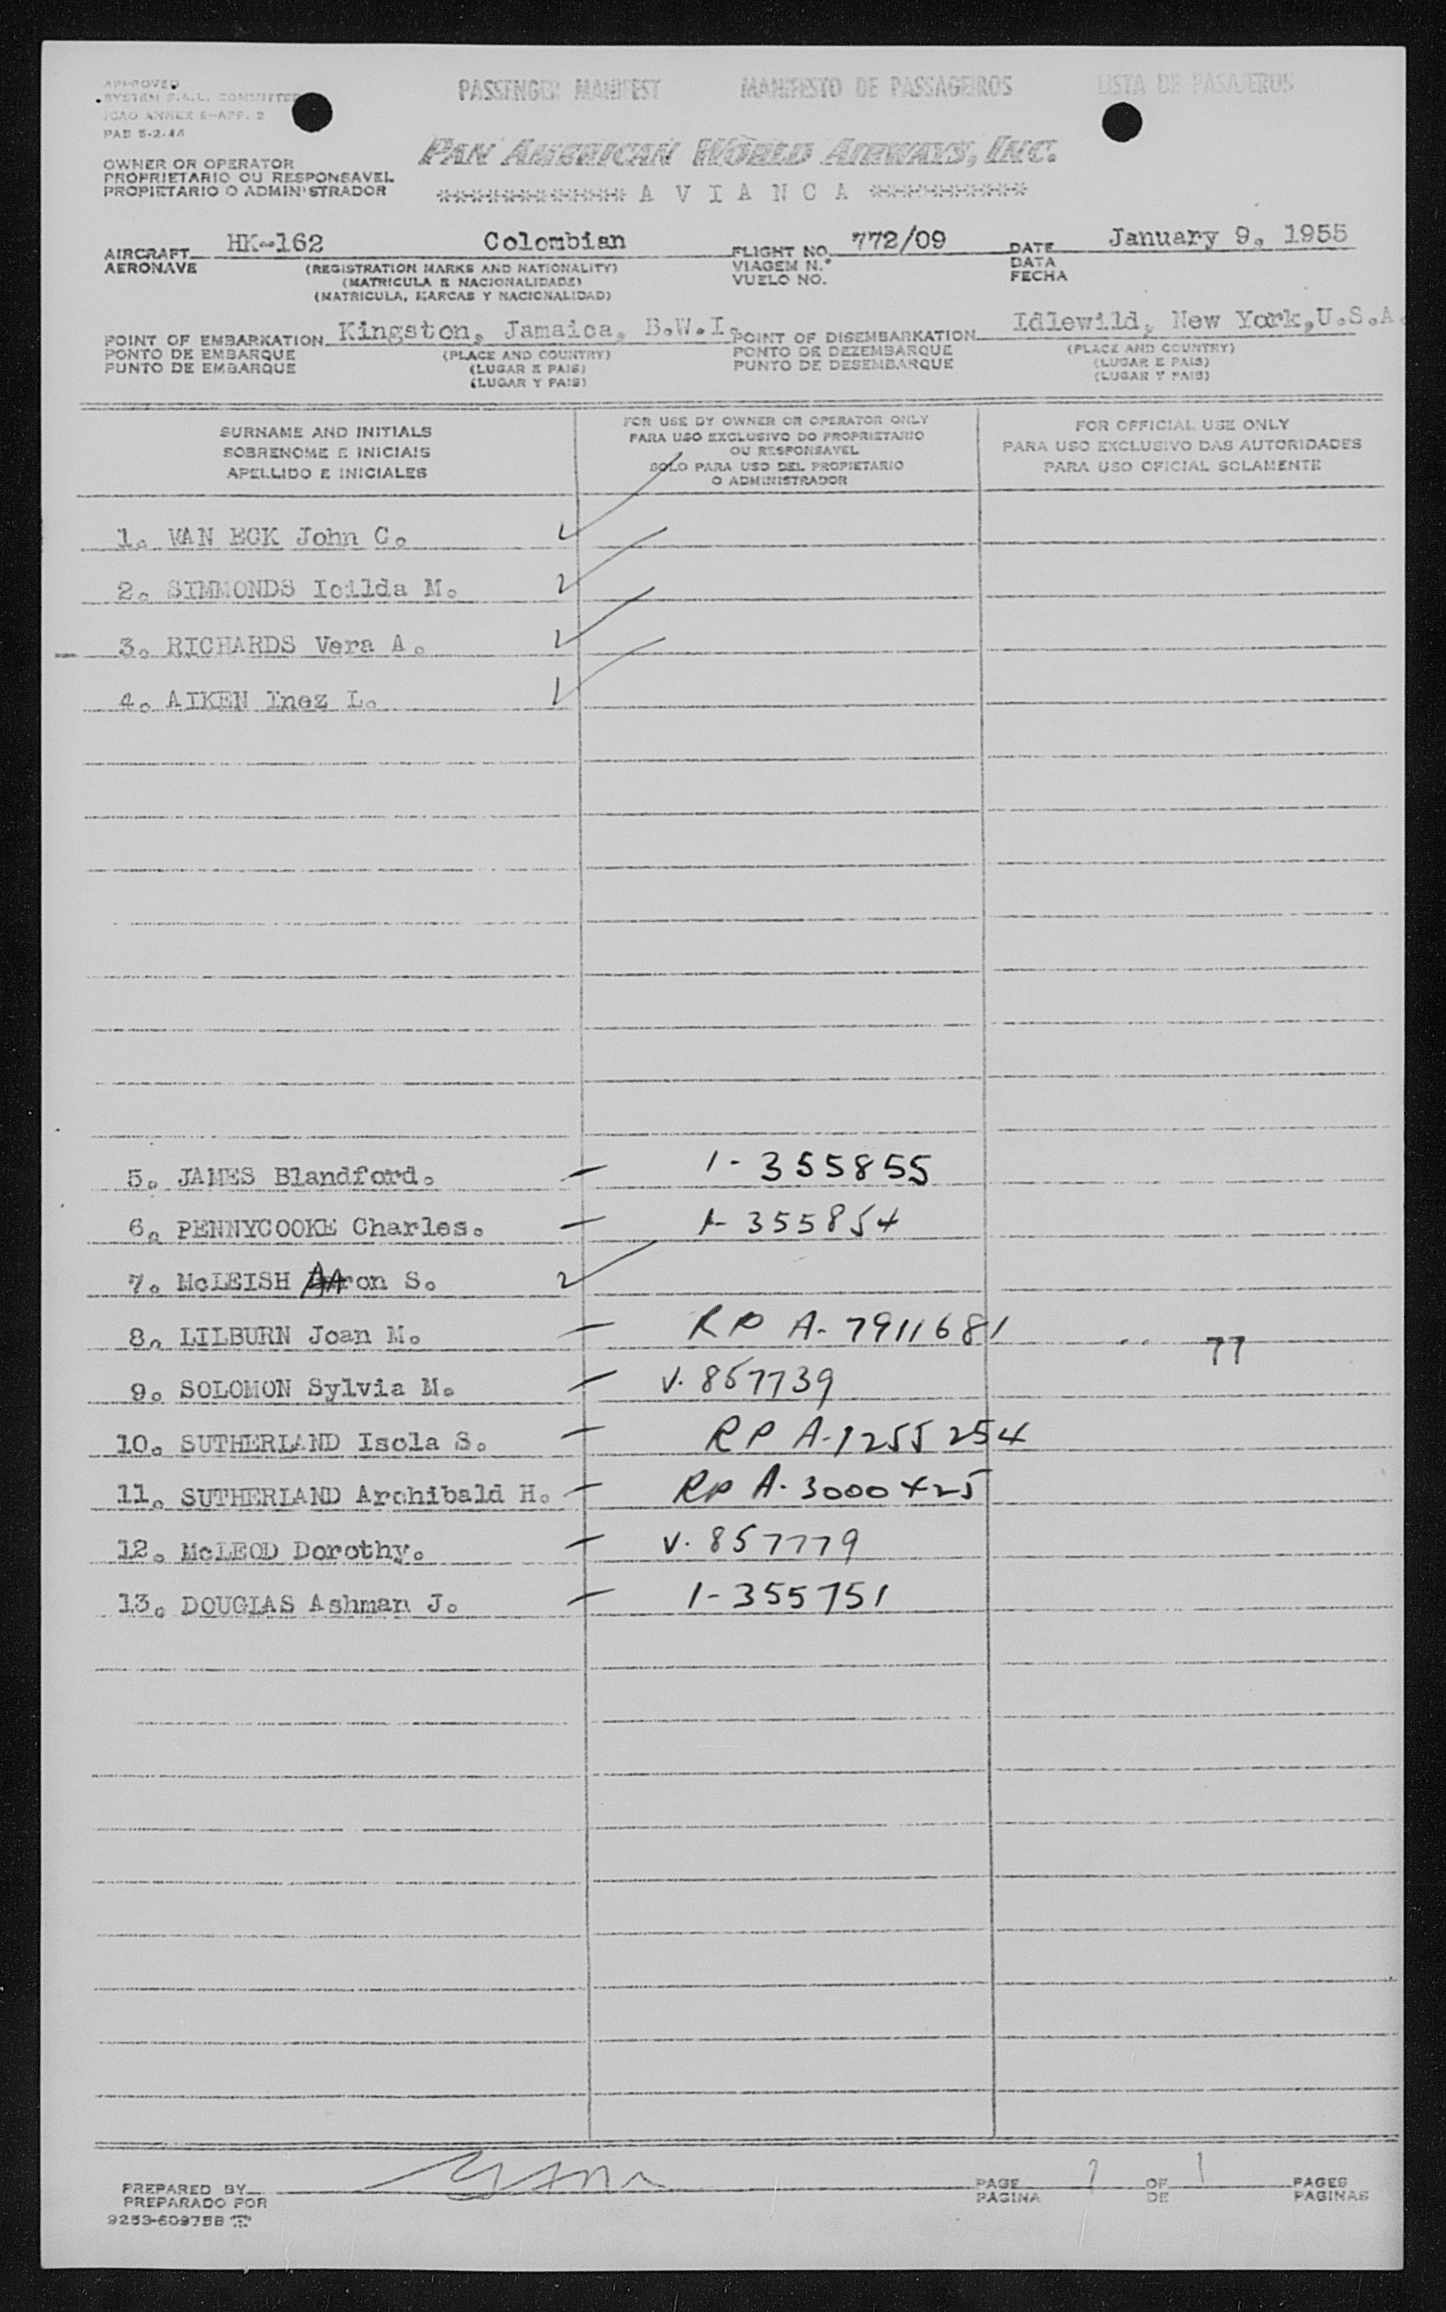 APPROVED
SYSTEM F.A.L. COMMITTEE
ICAO ANNEX 9-APP. 2
PAB 5-2-46
PASSENGER MANIFEST MANIFESTO DE PASSAGEIROS LISTA DE PASAJEROS
PAN AMERICAN WORLD AIRWAYS, INC.
OWNER OR OPERATOR
PROPRIETARIO OU RESPONSAVEL
PROPIETARIO O ADMINISTRADOR
************ A V I A N C A **********
AIRCRAFT HK-162 Colombian FLIGHT NO. 772/09 DATE January 9, 1955
AERONAVE (REGISTRATION MARKS AND NATIONALITY) VIAGEM N.° DATA
(MATRICULA E NACIONALIDADE) VUELO NO. FECHA
(MATRICULA, MARCAS Y NACIONALIDAD)
POINT OF EMBARKATION Kingston, Jamaica, B.W.I. POINT OF DISEMBARKATION Idlewild, New York, U.S.A.
PONTO DE EMBARQUE (PLACE AND COUNTRY) PONTO DE DEZEMBARQUE (PLACE AND COUNTRY)
PUNTO DE EMBARQUE (LUGAR E PAIS) PUNTO DE DESEMBARQUE (LUGAR E PAIS)
(LUGAR Y PAIS) (LUGAR Y PAIS)
SURNAME AND INITIALS
SOBRENOME E INICIAIS
APELLIDO E INICIALES
FOR USE BY OWNER OR OPERATOR ONLY
PARA USO EXCLUSIVO DO PROPRIETARIO
OU RESPONSAVEL
SOLO PARA USO DEL PROPIETARIO
O ADMINISTRADOR
FOR OFFICIAL USE ONLY
PARA USO EXCLUSIVO DAS AUTORIDADES
PARA USO OFICIAL SOLAMENTE
1. VAN ECK John C.
2. SIMMONDS Icilda M.
3. RICHARDS Vera A.
4. AIKEN Inez L.
5. JAMES Blandford. 1-355855
6. PENNYCOOKE Charles. 1-355854
7. McLEISH AAron S.
8. LILBURN Joan M. RP A-7911681 77
9. SOLOMON Sylvia M. V. 857739
10. SUTHERLAND Isola S. RP A-7255254
11. SUTHERLAND Archibald H. RP A-3000425
12. McLEOD Dorothy. V. 857779
13. DOUGLAS Ashman J. 1-355751
PREPARED BY PAGE 1 OF 1 PAGES
PREPARADO POR PAGINA DE PAGINAS
9253-60975B